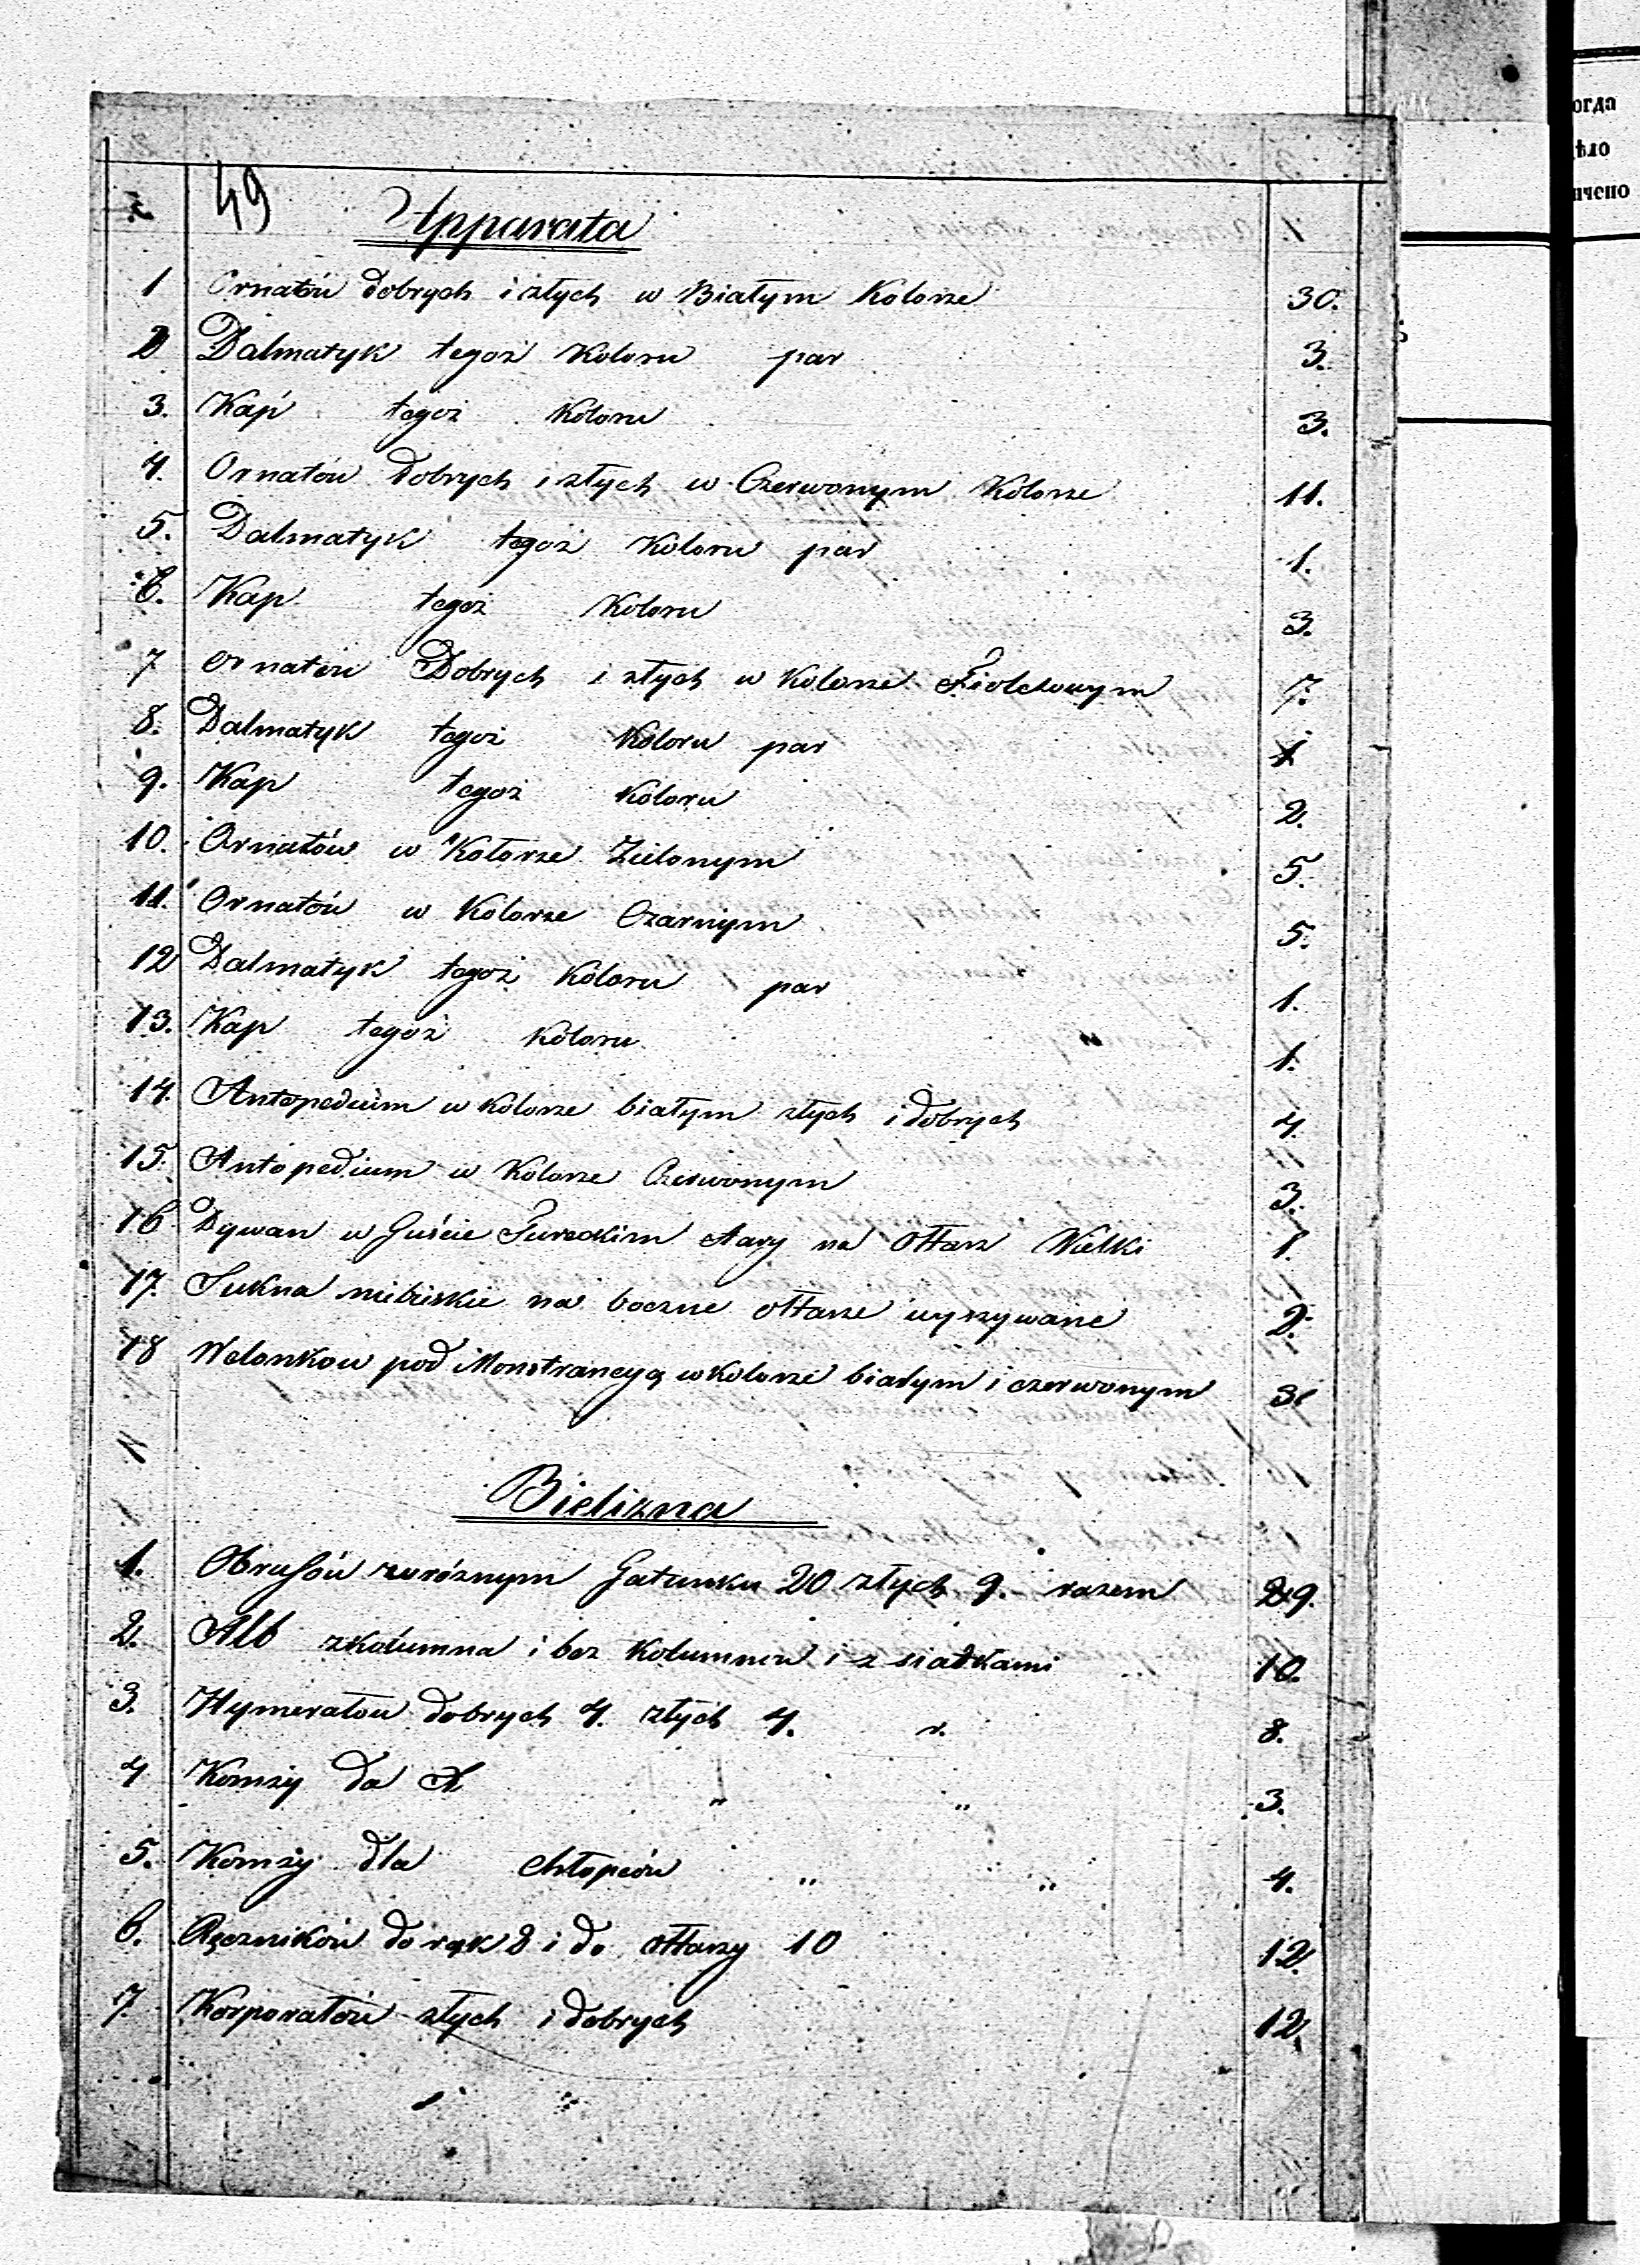 49
Apparata
1 Ornatów dobrych i złych w Białym Kolorze 30.
2 Dalmatyk tegoż Koloru par 3.
3. Kap tegoż Koloru 3.
4. Ornatów dobrych i złych w Czerwonym Kolorze 11.
5. Dalmatyk tegoż Koloru par 1.
6. Kap tegoż Koloru 3.
7 Ornatów Dobrych i złych w Kolorze Fioletowym 7.
8. Dalmatyk tegoż Koloru par 1
9. Kap tegoż Koloru 2.
10. Ornatów w Kolorze Zielonym 5.
11. Ornatów w Kolorze Czarnym 5.
12 Dalmatyk tegoż Koloru par 1.
13. Kap tegoż Koloru 1.
14. Antopedium w Kolorze białym złych i dobrych 4.
15. Antopedium w Kolorze Czerwonym 3.
16 Dywan w Guście Tureckim stary na Ołtarz Wielki 1.
17. Sukna niebieskie na boczne ołtarze wyszywane 2.
18 Welonkow pod Monstrancyą w Kolorze białym i czerwonym 3
Bielizna
1. Obrusów w różnym Gatunku 20 złych 9. razem 29.
2. Alb z kolumna i bez Kolumnow i z siatkami 10.
3. Hymeratow dobrych 4. złych 4. r. 8.
4 Komży da X " " 3.
5. Komży dla Chłopców " " 4.
6. Ręczników do rąk 8 i do ołtarzy 10 12.
7. Korporałów złych i dobrych 12.
огда
ѣло
ичено